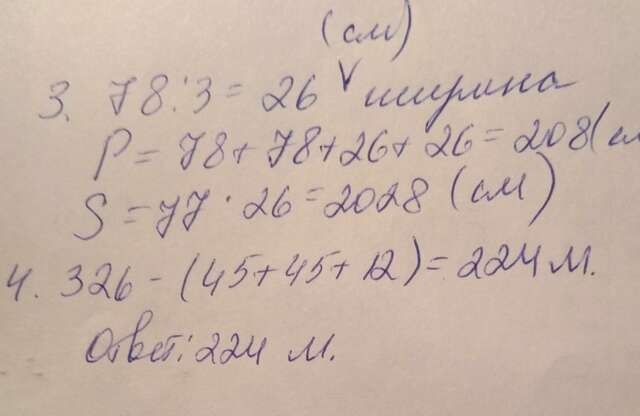 (см)
3. 78:3 = 26 ширина
P = 78 + 78 + 26 + 26 = 208 (см
S = 77 · 26 = 2028 (см)
4. 326 - (45 + 45 + 12) = 224 м.
Ответ: 224 м.